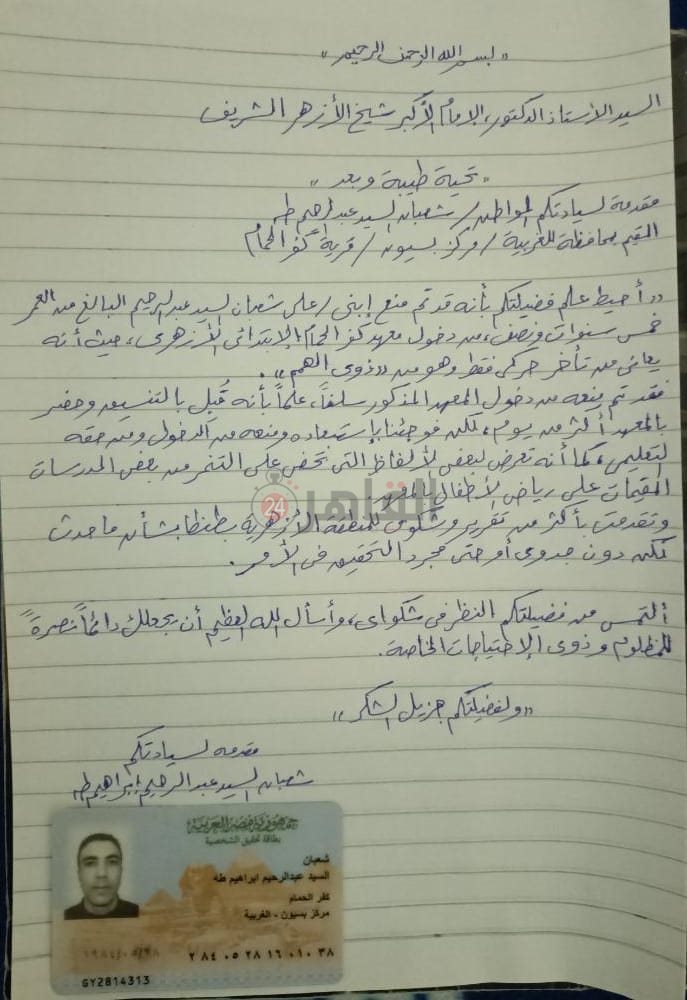 "بسم الله الرحمن الرحيم"
السيد الأستاذ الدكتور، الإمام الأكبر شيخ الأزهر الشريف
"تحية طيبة وبعد"
مقدمة لسيادتكم المواطن/ شعبان السيد عبدالرحيم طه
المقيم بمحافظة الغربية/ مركز بسيون/ قرية كفر الحمام
"أحيط علم فضيلتكم بأنه قد تم منع إبنى/ على شعبان السيد عبدالرحيم البالغ من العمر
خمس سنوات ونصف، من دخول معهد كفر الحمام الإبتدائى الأزهرى، حيث أنه
يعانى من تأخر حركى فقط وهو من "ذوى الهمم".
فقد تم منعه من دخول المعهد المذكور سلفاً، علماً بأنه قُبل بالتنسيق وحضر
بالمعهد أكثر من يوم، لكن فوجئنا بإستبعاده ومنعه من الدخول ومن حقه
لتعليمى، كما أنه تعرض لبعض الألفاظ التى تحض على التنمر من بعض المدرسات
المقيمات على رياض الأطفال بالمعهد.
القاهرة 24
وتقدمت بأكثر من تقرير وشكوى للمنطقة الأزهرية بطنطا بشأن ما حدث
لكن دون جدوى أو حتى مجرد التحقيق فى الأمر.
ألتمس من فضيلتكم النظر فى شكواى، وأسأل الله العظيم أن يجعلك دائماً نصرةً
للمظلوم وذوى الإحتياجات الخاصة.
"ولفضيلتكم جزيل الشكر"
مقدمه لسيادتكم
شعبان السيد عبدالرحيم إبراهيم طه
جمهورية مصر العربية
بطاقة تحقيق الشخصية
شعبان
السيد عبدالرحيم ابراهيم طه
كفر الحمام
مركز بسيون - الغربية
٢ ٨٤ ٠٥ ٢٨ ١٦ ٠١٠ ٣٨
GY2814313